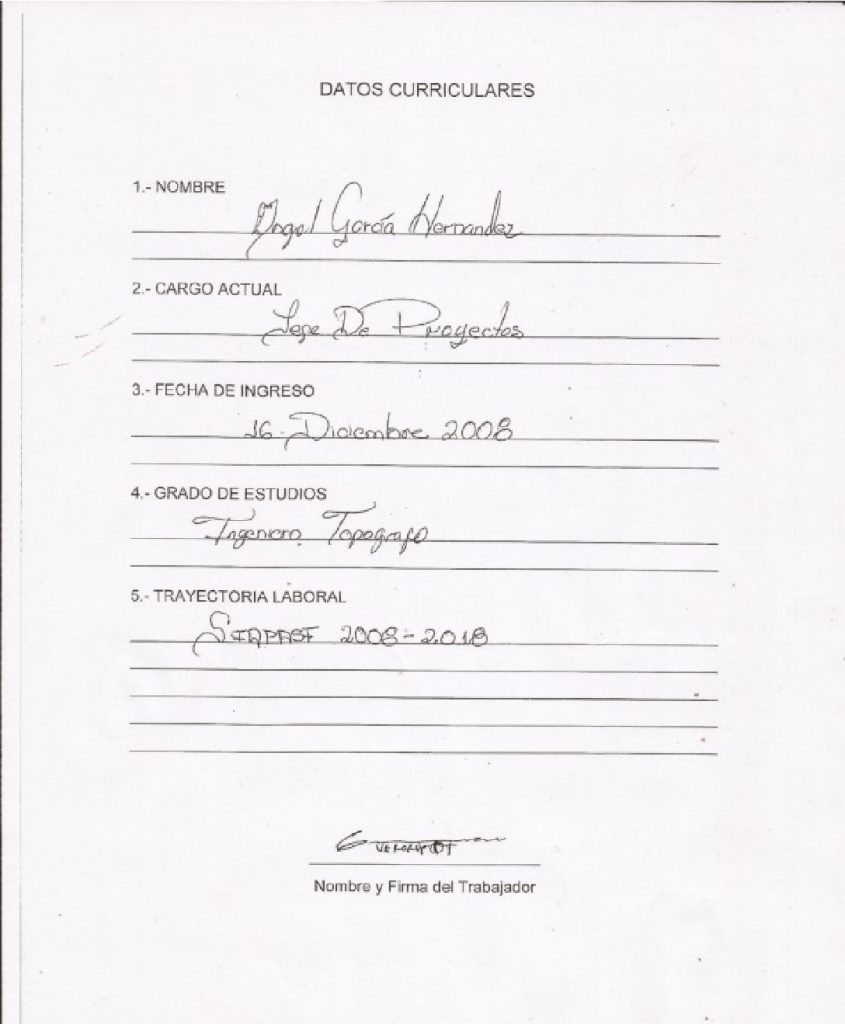 DATOS CURRICULARES
1.- NOMBRE
Angel García Hernandez
2.- CARGO ACTUAL
Jefe De Proyectos
3.- FECHA DE INGRESO
16 Diciembre 2008
4.- GRADO DE ESTUDIOS
Ingeniero Topografo
5.- TRAYECTORIA LABORAL
SIAPASF 2008-2018
Nombre y Firma del Trabajador